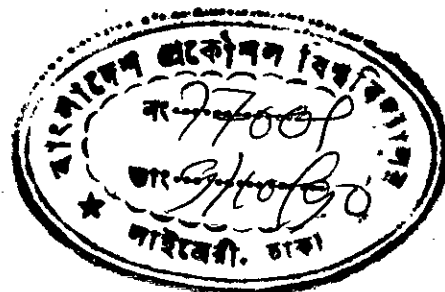 বাংলাদেশ প্রকৌশল বিশ্ববিদ্যালয়
নং
তাং
লাইব্রেরী. ঢাকা